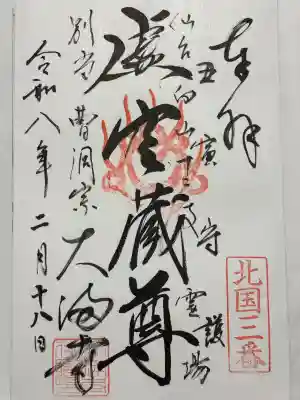 奉拝
北国三番
丑寅守護
仙台向山十二支霊場
虚空蔵尊
別当 曹洞宗 大満寺
令和八年二月十八日